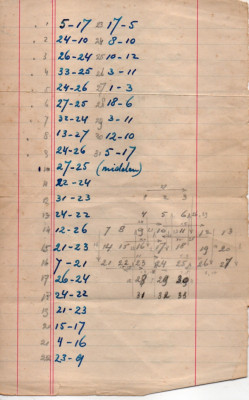 1 5-17 23 17-5
2 24-10 24 8-10
3 26-24 25 10-12
4 33-25 26 3-11
5 24-26 27 1-3
6 27-25 28 18-6
7 32-24 29 3-11
8 13-27 30 12-10
9 24-26 31 5-17
10 27-25 (midelen)
11 22-24
12 31-23 1 2 3
13 24-22 4 5 6
14 12-26 7 8 9 10 11 12 13
15 21-23 14 15 16 17 18 19 20
16 7-21 21 22 23 24 25 26 27
17 26-24 28 29 30
18 24-22 31 32 33
19 21-23
20 15-17
21 4-16
22 23-9